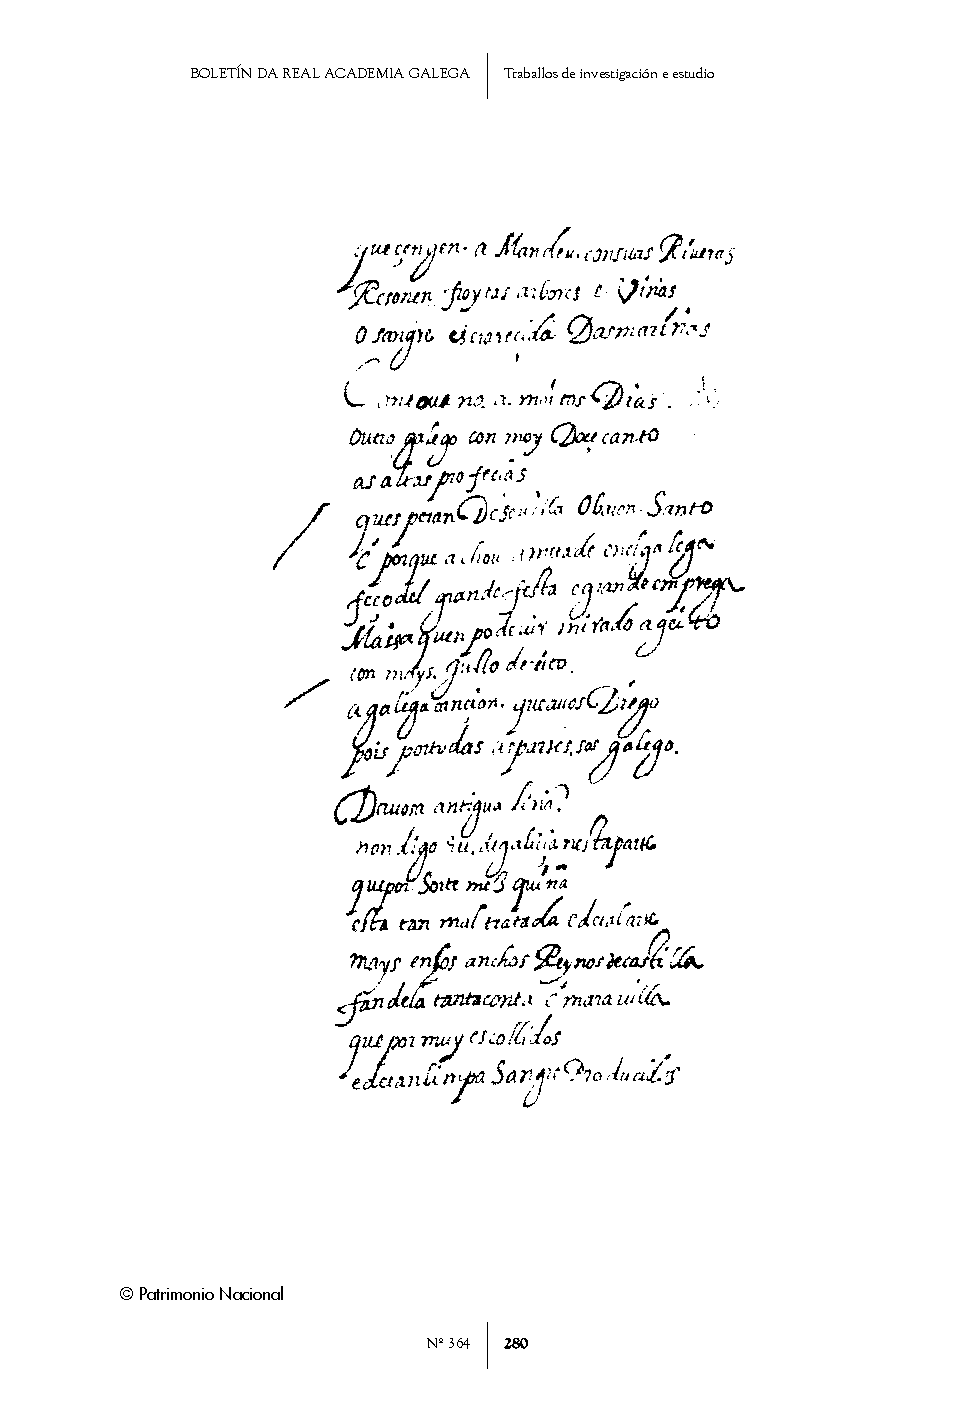 BOLETÍN DA REAL ACADEMIA GALEGA
Traballos de investigación e estudio
que çengen a Mandeu, con suas Riueras
Resonen froytas arbores e Viñas
O sangre esclarecida Dasmariñas
que no a moitos Dias
Outro galego con moy Doçe canto
as altas profecias
quesperan De seuilla O bauen Santo
E porque achou ametade enelgalego
feço del grande festa e grande emprego
Maissa quen podeuir mirado agüito
con mays. gusto derito.
a galega cancion. que auos Diego
pois por tudas as partes, sos galego.
Da uosa antigua liña?
non digo eu, de galiçia nesta parte
que por Sorte mesquiña
esta tan mal tratada e de tal arte
mays en los anchos Reynos de castilla
fan dela tanta conta e marauilla
que por muy escollidos
e de tan limpa Sangre Producidos
© Patrimonio Nacional
Nº 364
280